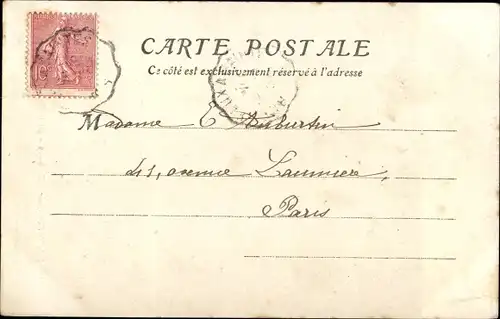 CARTE POSTALE
Ce côté est exclusivement réservé à l'adresse
Madame E Auburtin
41, avenue Laumière,
Paris